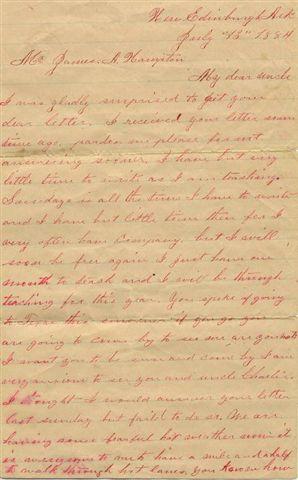 New Edinburgh Ark
July "13" 1884
Mr James. A. Hampton
My dear uncle
I was gladly surprised to get your
dear letter. I received your letter some
time ago, pardon me please for not
answering sooner, I have but very
little time to write as I am teaching.
Sundays is all the time I have to write
and I have but little time then for I
very often have company, but I will
soon be free again I just have one
month to teach and I will be through
teaching for this year. You spoke of going
to this summer if you go you
are going to come by to see us are you not
I want you to be sure and come by I am
very anxious to see you and uncle Charlie.
I thought I would answer your letter
last sunday but faild to do so. We are
having some fearful hot weather now it
is to have a mile and a half
to walk through hot lanes, you know how